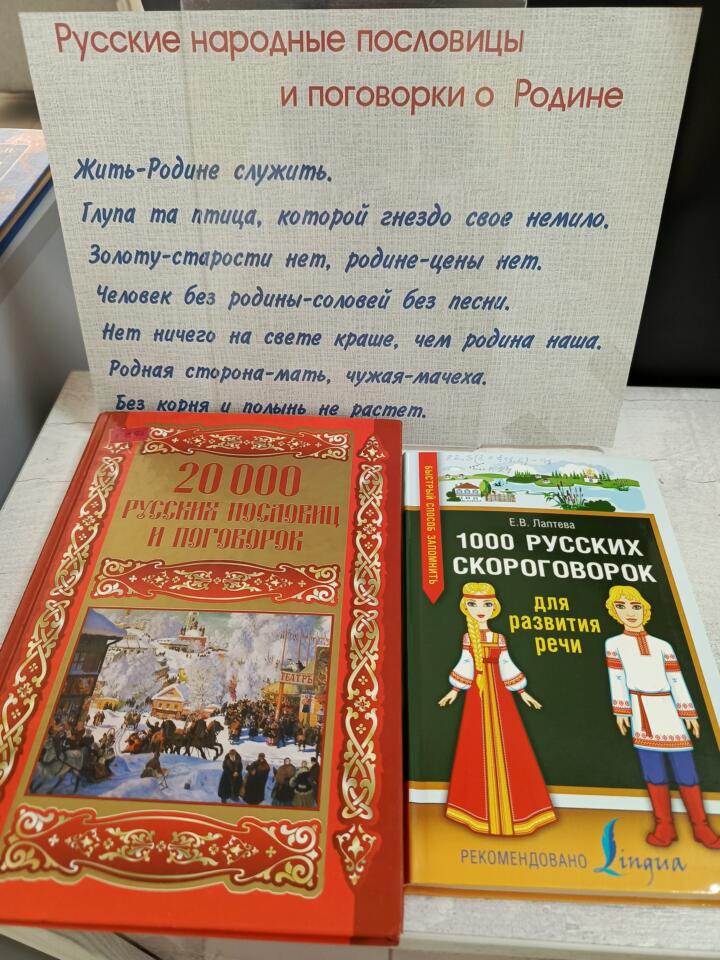 Русские народные пословицы
и поговорки о Родине
Жить-Родине служить.
Глупа та птица, которой гнездо свое немило.
Золоту-старости нет, родине-цены нет.
Человек без родины-соловей без песни.
Нет ничего на свете краше, чем родина наша.
Родная сторона-мать, чужая-мачеха.
Без корня и полынь не растет.
20 000
РУССКИХ ПОСЛОВИЦ
И ПОГОВОРОК
ТЕАТРЪ
БЫСТРЫЙ СПОСОБ ЗАПОМНИТЬ
Е.В. Лаптева
1000 РУССКИХ
СКОРОГОВОРОК
для
развития
речи
РЕКОМЕНДОВАНО Lingua